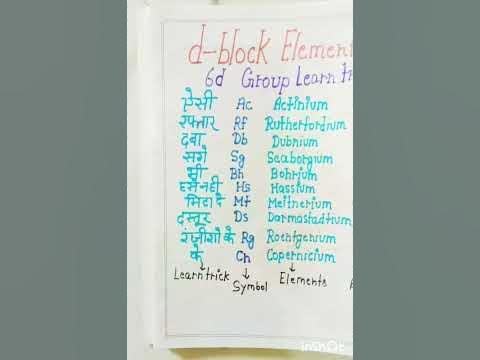 d-block Elemen
6d Group Learn tr
ऐसी Ac Actinium
रफ्तार Rf Rutherfordium
दबा Db Dubnium
सगे Sg Seaborgium
भी Bh Bohrium
Hs Hassium
मिटा दे Mt Meitnerium
दस्तूर Ds Darmastadtium
रंजीशो के Rg Roentgenium
के Ch Copernicium
Learn trick Symbol Elements
InShOt